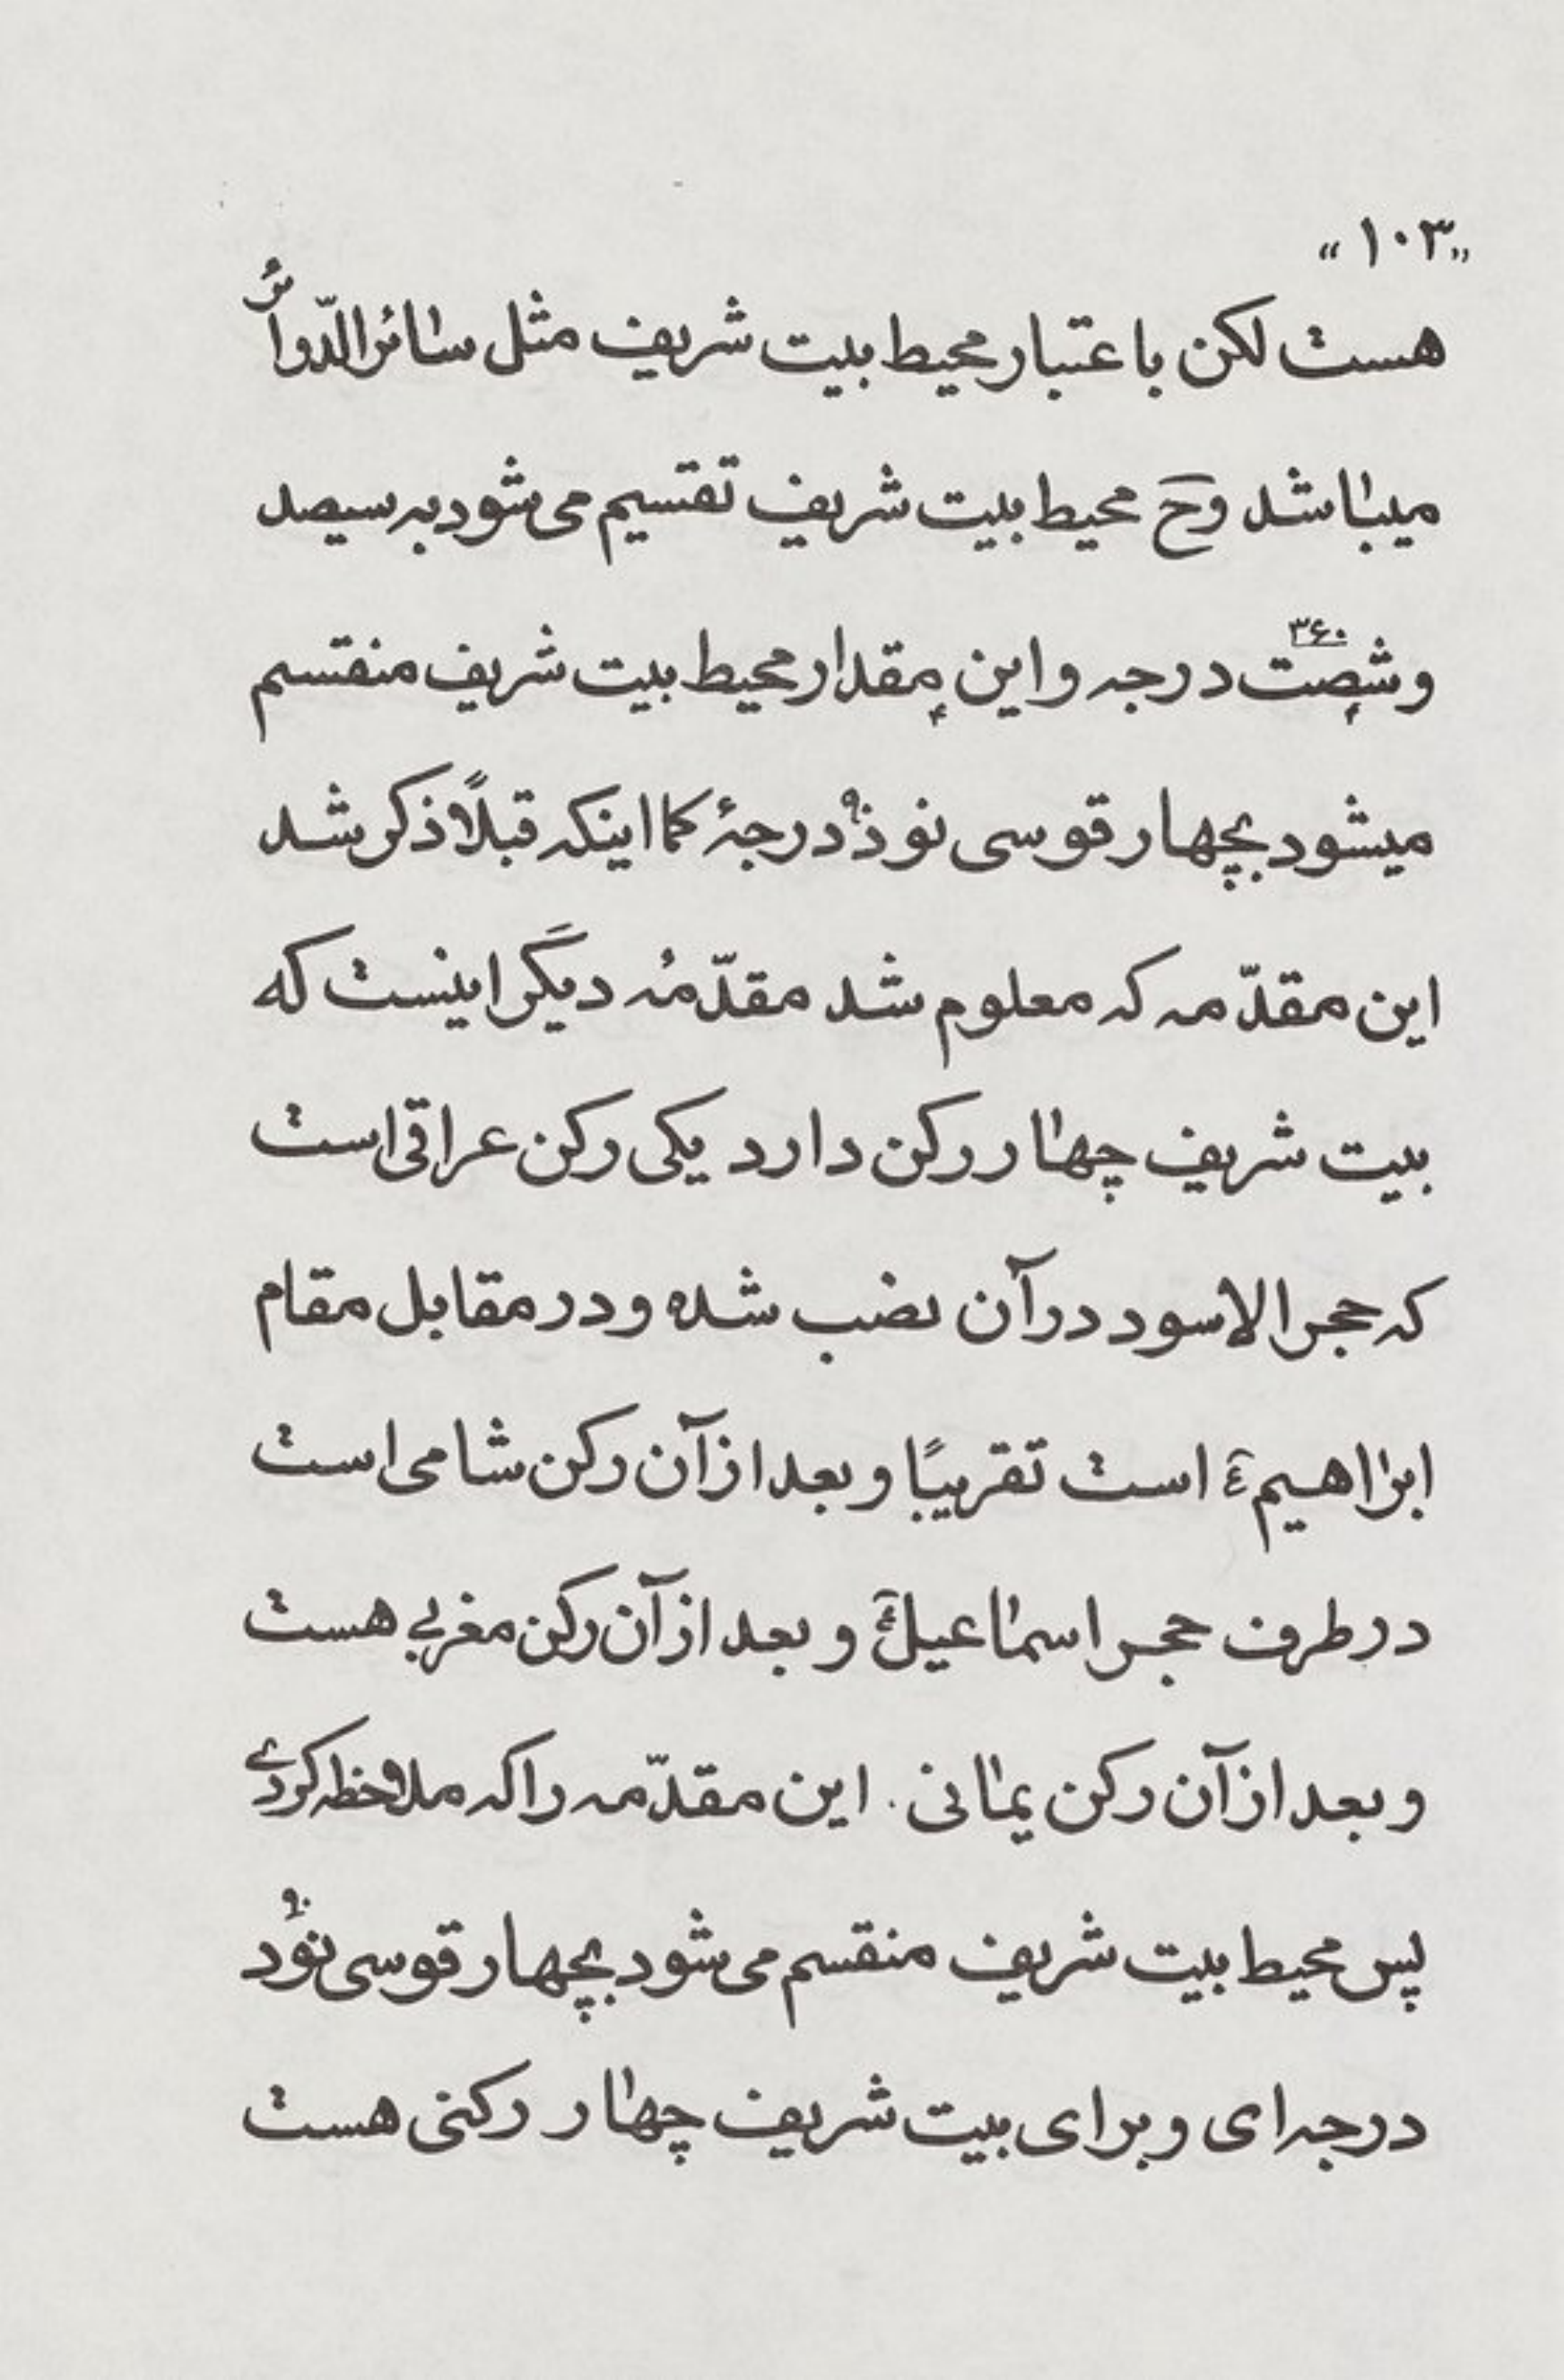 «۱۰۳»
هست لکن باعتبار محیط بیت شریف مثل سائر الدّوائر
میباشد وحَ محیط بیت شریف تقسیم می‌شود به سیصد
و شصت ۳۶۰ درجه و این مقدار محیط بیت شریف منقسم
میشود بچهار قوسی نود ۹۰ درجۀ کما اینکه قبلاً ذکر شد
این مقدّمه که معلوم شد مقدّمۀ دیگر اینست که
بیت شریف چهار رکن دارد یکی رکن عراقی است
که حجر الاسود در آن نصب شده و در مقابل مقام
ابراهیم ع است تقریبًا و بعد از آن رکن شامی است
در طرف حجر اسماعیل ع و بعد از آن رکن مغربی هست
و بعد از آن رکن یمانی. این مقدّمه را که ملاحظه کردی
پس محیط بیت شریف منقسم می‌شود بچهار قوسی نود ۹۰
درجه‌ای و برای بیت شریف چهار رکنی هست